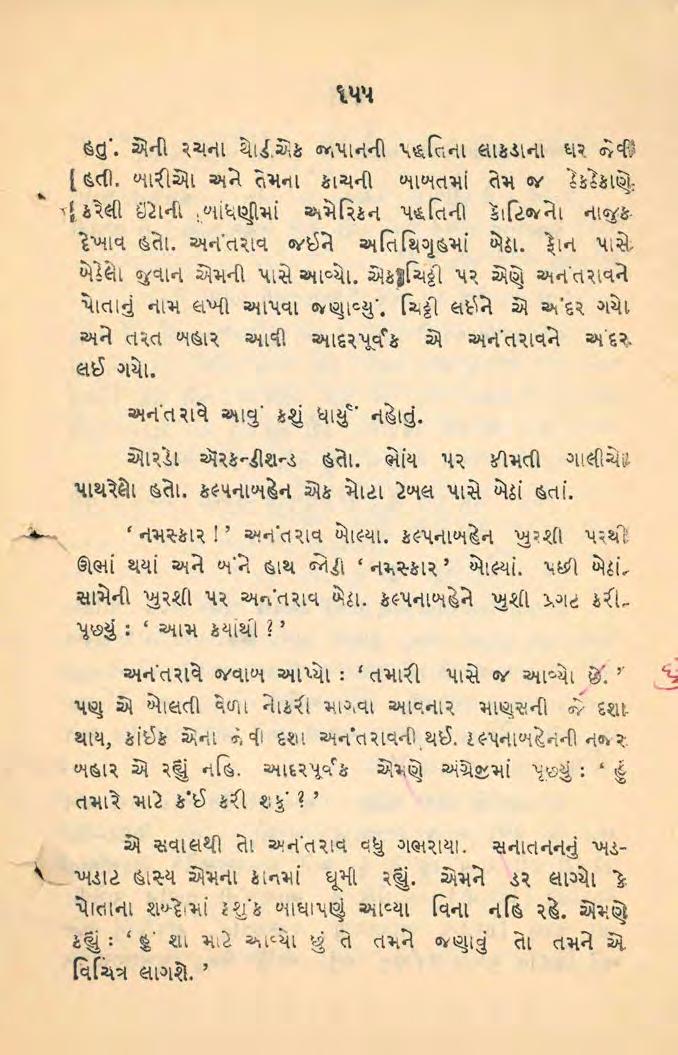 ૬૫૫
હતું. એની રચના થોડી એક જાપાનની પદ્ધતિના લાકડાના ઘર જેવી
હતી. બારીઓ અને તેમના કાચની બાબતમાં તેમ જ ઠેકઠેકાણે
કરેલી ઈંટોની બાંધણીમાં અમેરિકન પદ્ધતિની કૉટિજનો નાજુક
દેખાવ હતો. અનંતરાવ જઈને અતિથિગૃહમાં બેઠા. ફોન પાસે
બેઠેલો જુવાન એમની પાસે આવ્યો. એક ચિઠ્ઠી પર એણે અનંતરાવને
પોતાનું નામ લખી આપવા જણાવ્યું. ચિઠ્ઠી લઈને એ અંદર ગયો
અને તરત બહાર આવી આદરપૂર્વક એ અનંતરાવને અંદર
લઈ ગયો.
અનંતરાવે આવું કશું ધાર્યું નહોતું.
ઓરડો ઍરકન્ડીશન્ડ હતો. ભોંય પર કીમતી ગાલીચો
પાથરેલો હતો. કલ્પનાબહેન એક મોટા ટેબલ પાસે બેઠાં હતાં.
‘ નમસ્કાર ! ’ અનંતરાવ બોલ્યા. કલ્પનાબહેન ખુરશી પરથી
ઊભાં થયાં અને બંને હાથ જોડી ‘ નમસ્કાર ’ બોલ્યાં. પછી બેઠાં.
સામેની ખુરશી પર અનંતરાવ બેઠા. કલ્પનાબહેને ખુશી પ્રગટ કરી.
પૂછ્યું : ‘ આમ કયાંથી ? ’
અનંતરાવે જવાબ આપ્યો : ‘ તમારી પાસે જ આવ્યો છે. ’
પણ એ બોલતી વેળા નોકરી માગવા આવનાર માણસની જે દશા
થાય, કાંઈક એના જેવી દશા અનંતરાવની થઈ. કલ્પનાબહેનની નજર
બહાર એ રહ્યું નહિ. આદરપૂર્વક એમણે અંગ્રેજીમાં પૂછ્યું : ‘ હું
તમારે માટે કંઈ કરી શકું ? ’
એ સવાલથી તો અનંતરાવ વધુ ગભરાયા. સનાતનનનું ખડ-
ખડાટ હાસ્ય એમના કાનમાં ઘૂમી રહ્યું. એમને ડર લાગ્યો કે
પોતાના શબ્દોમાં કશુંક બાઘાપણું આવ્યા વિના નહિ રહે. એમણે
કહ્યું : ‘ હું શા માટે આવ્યો છું તે તમને જણાવું તો તમને એ
વિચિત્ર લાગશે. ’